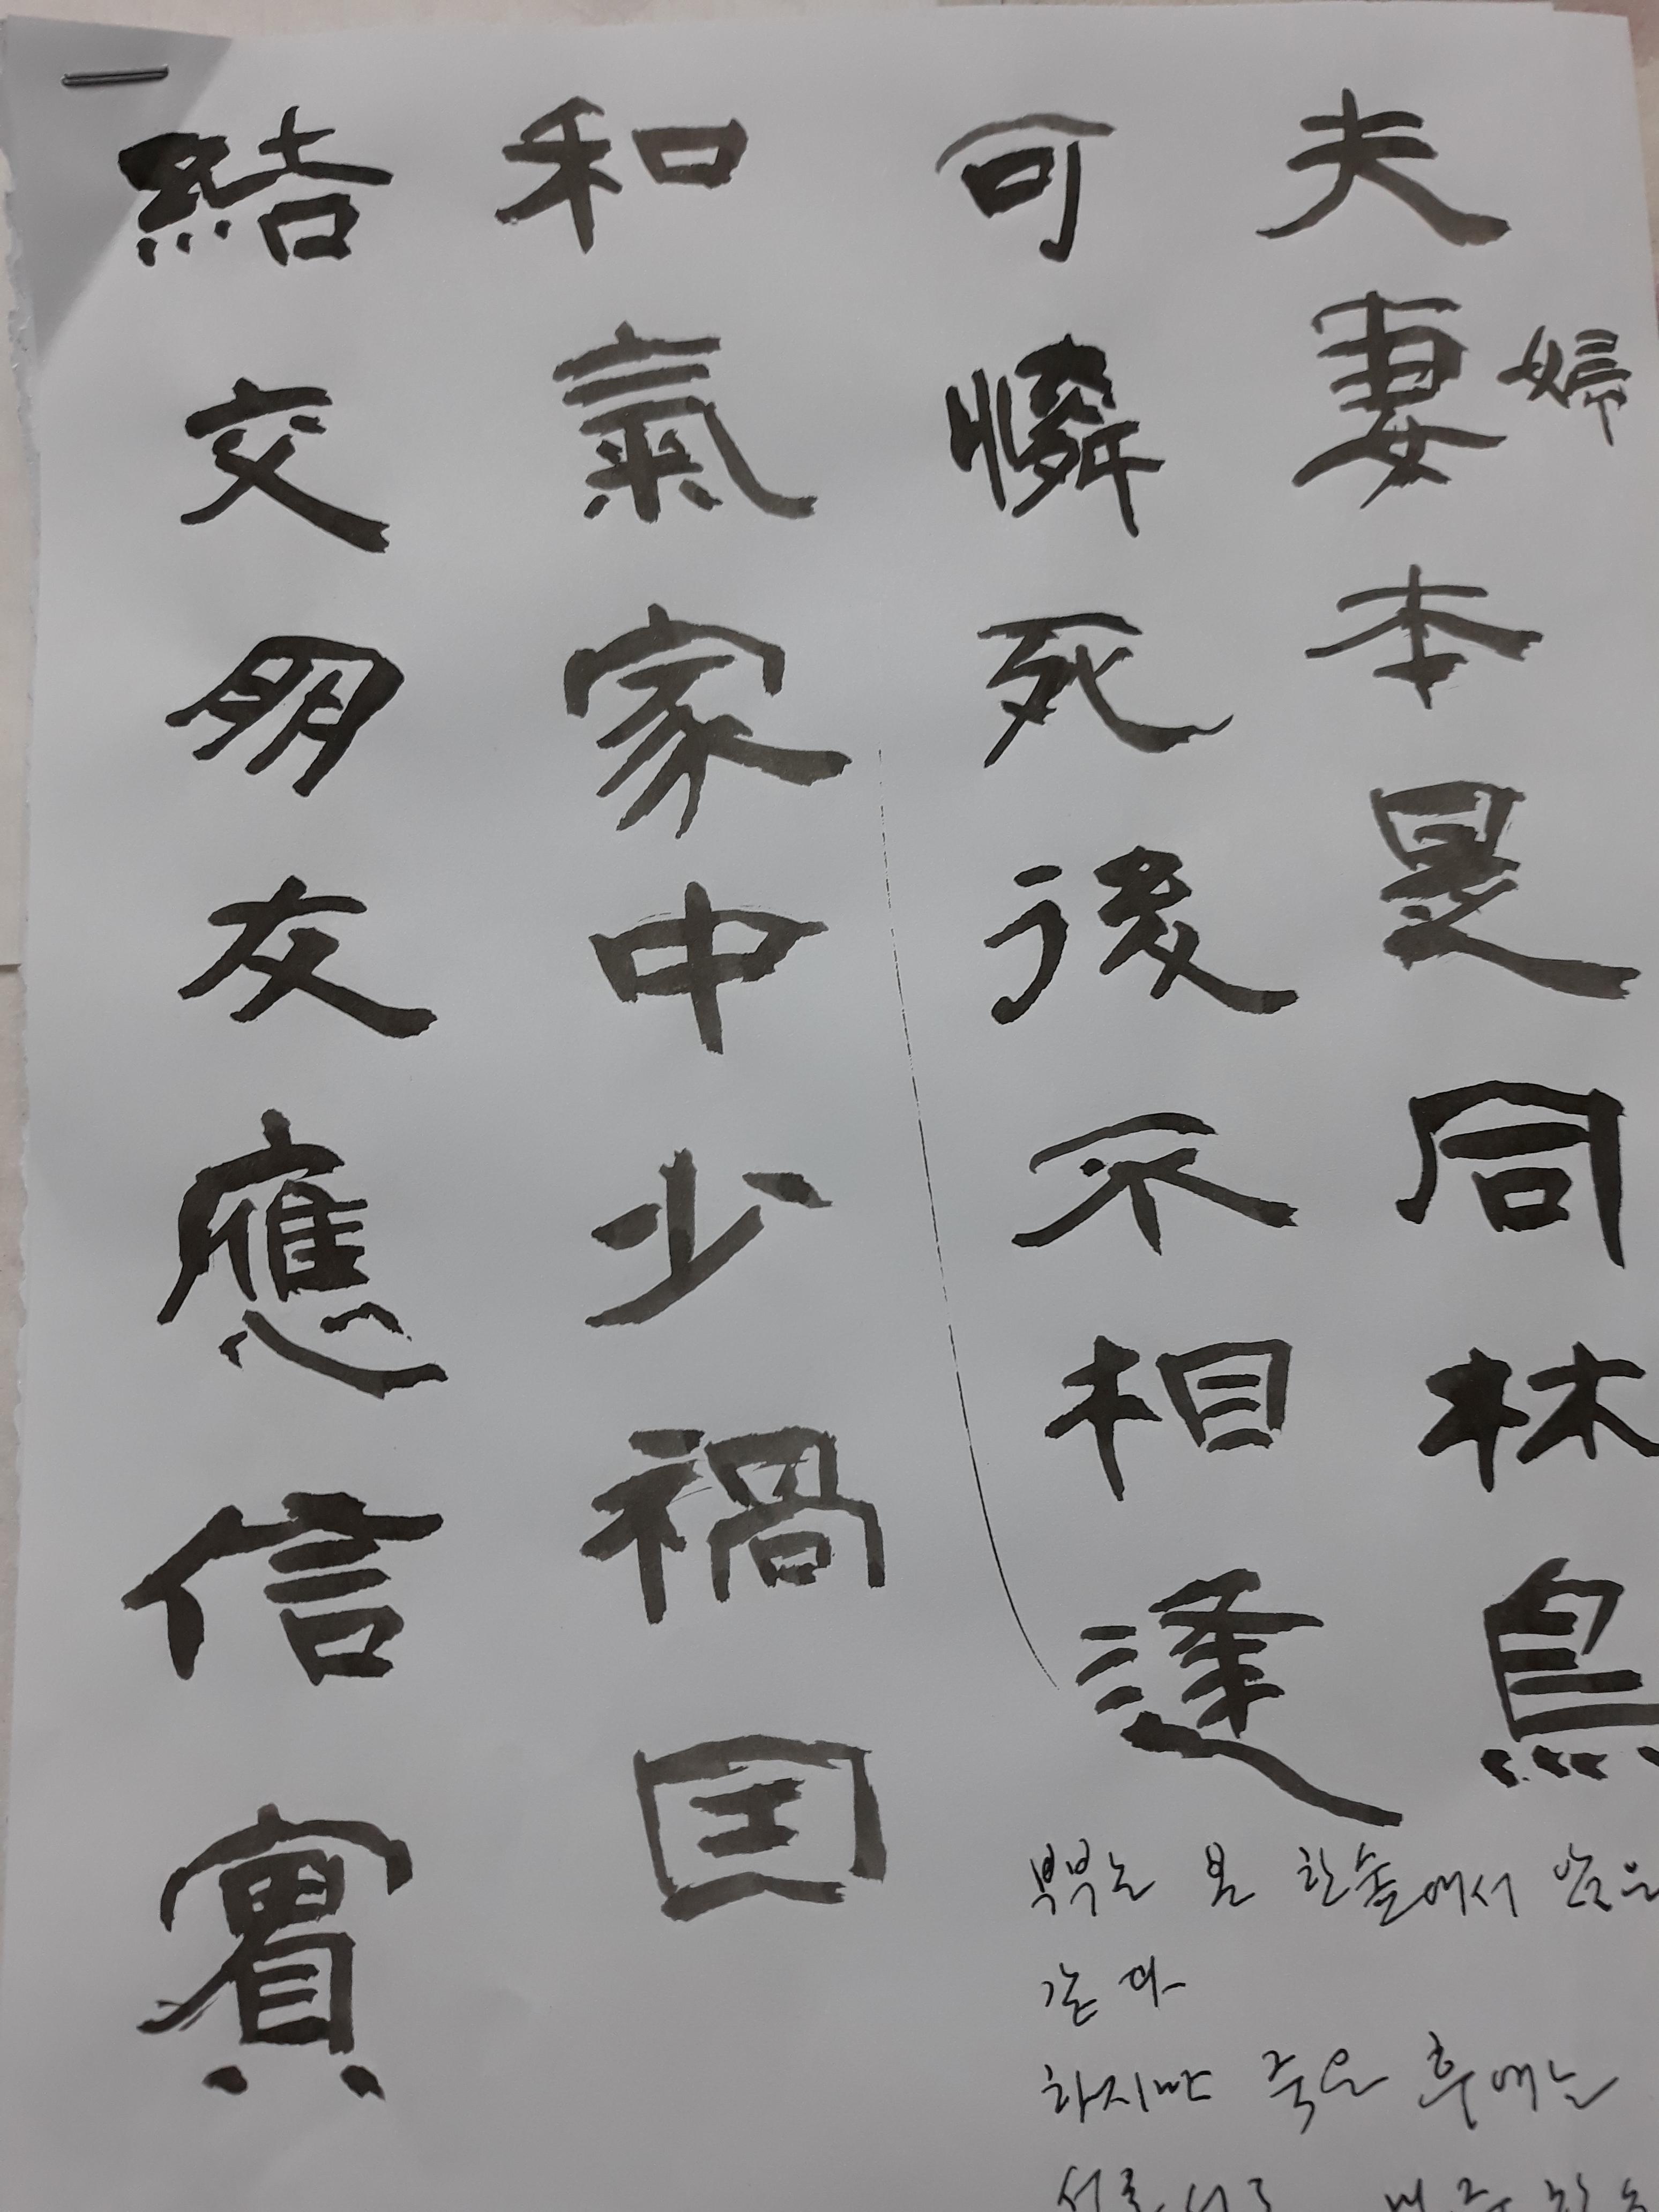 夫妻本是同林鳥
婦
可憐死後不相逢
和氣家中少禍囯
結交朋友應信實
부부는 본 한숲에서
같다
하지만 죽은 후에는